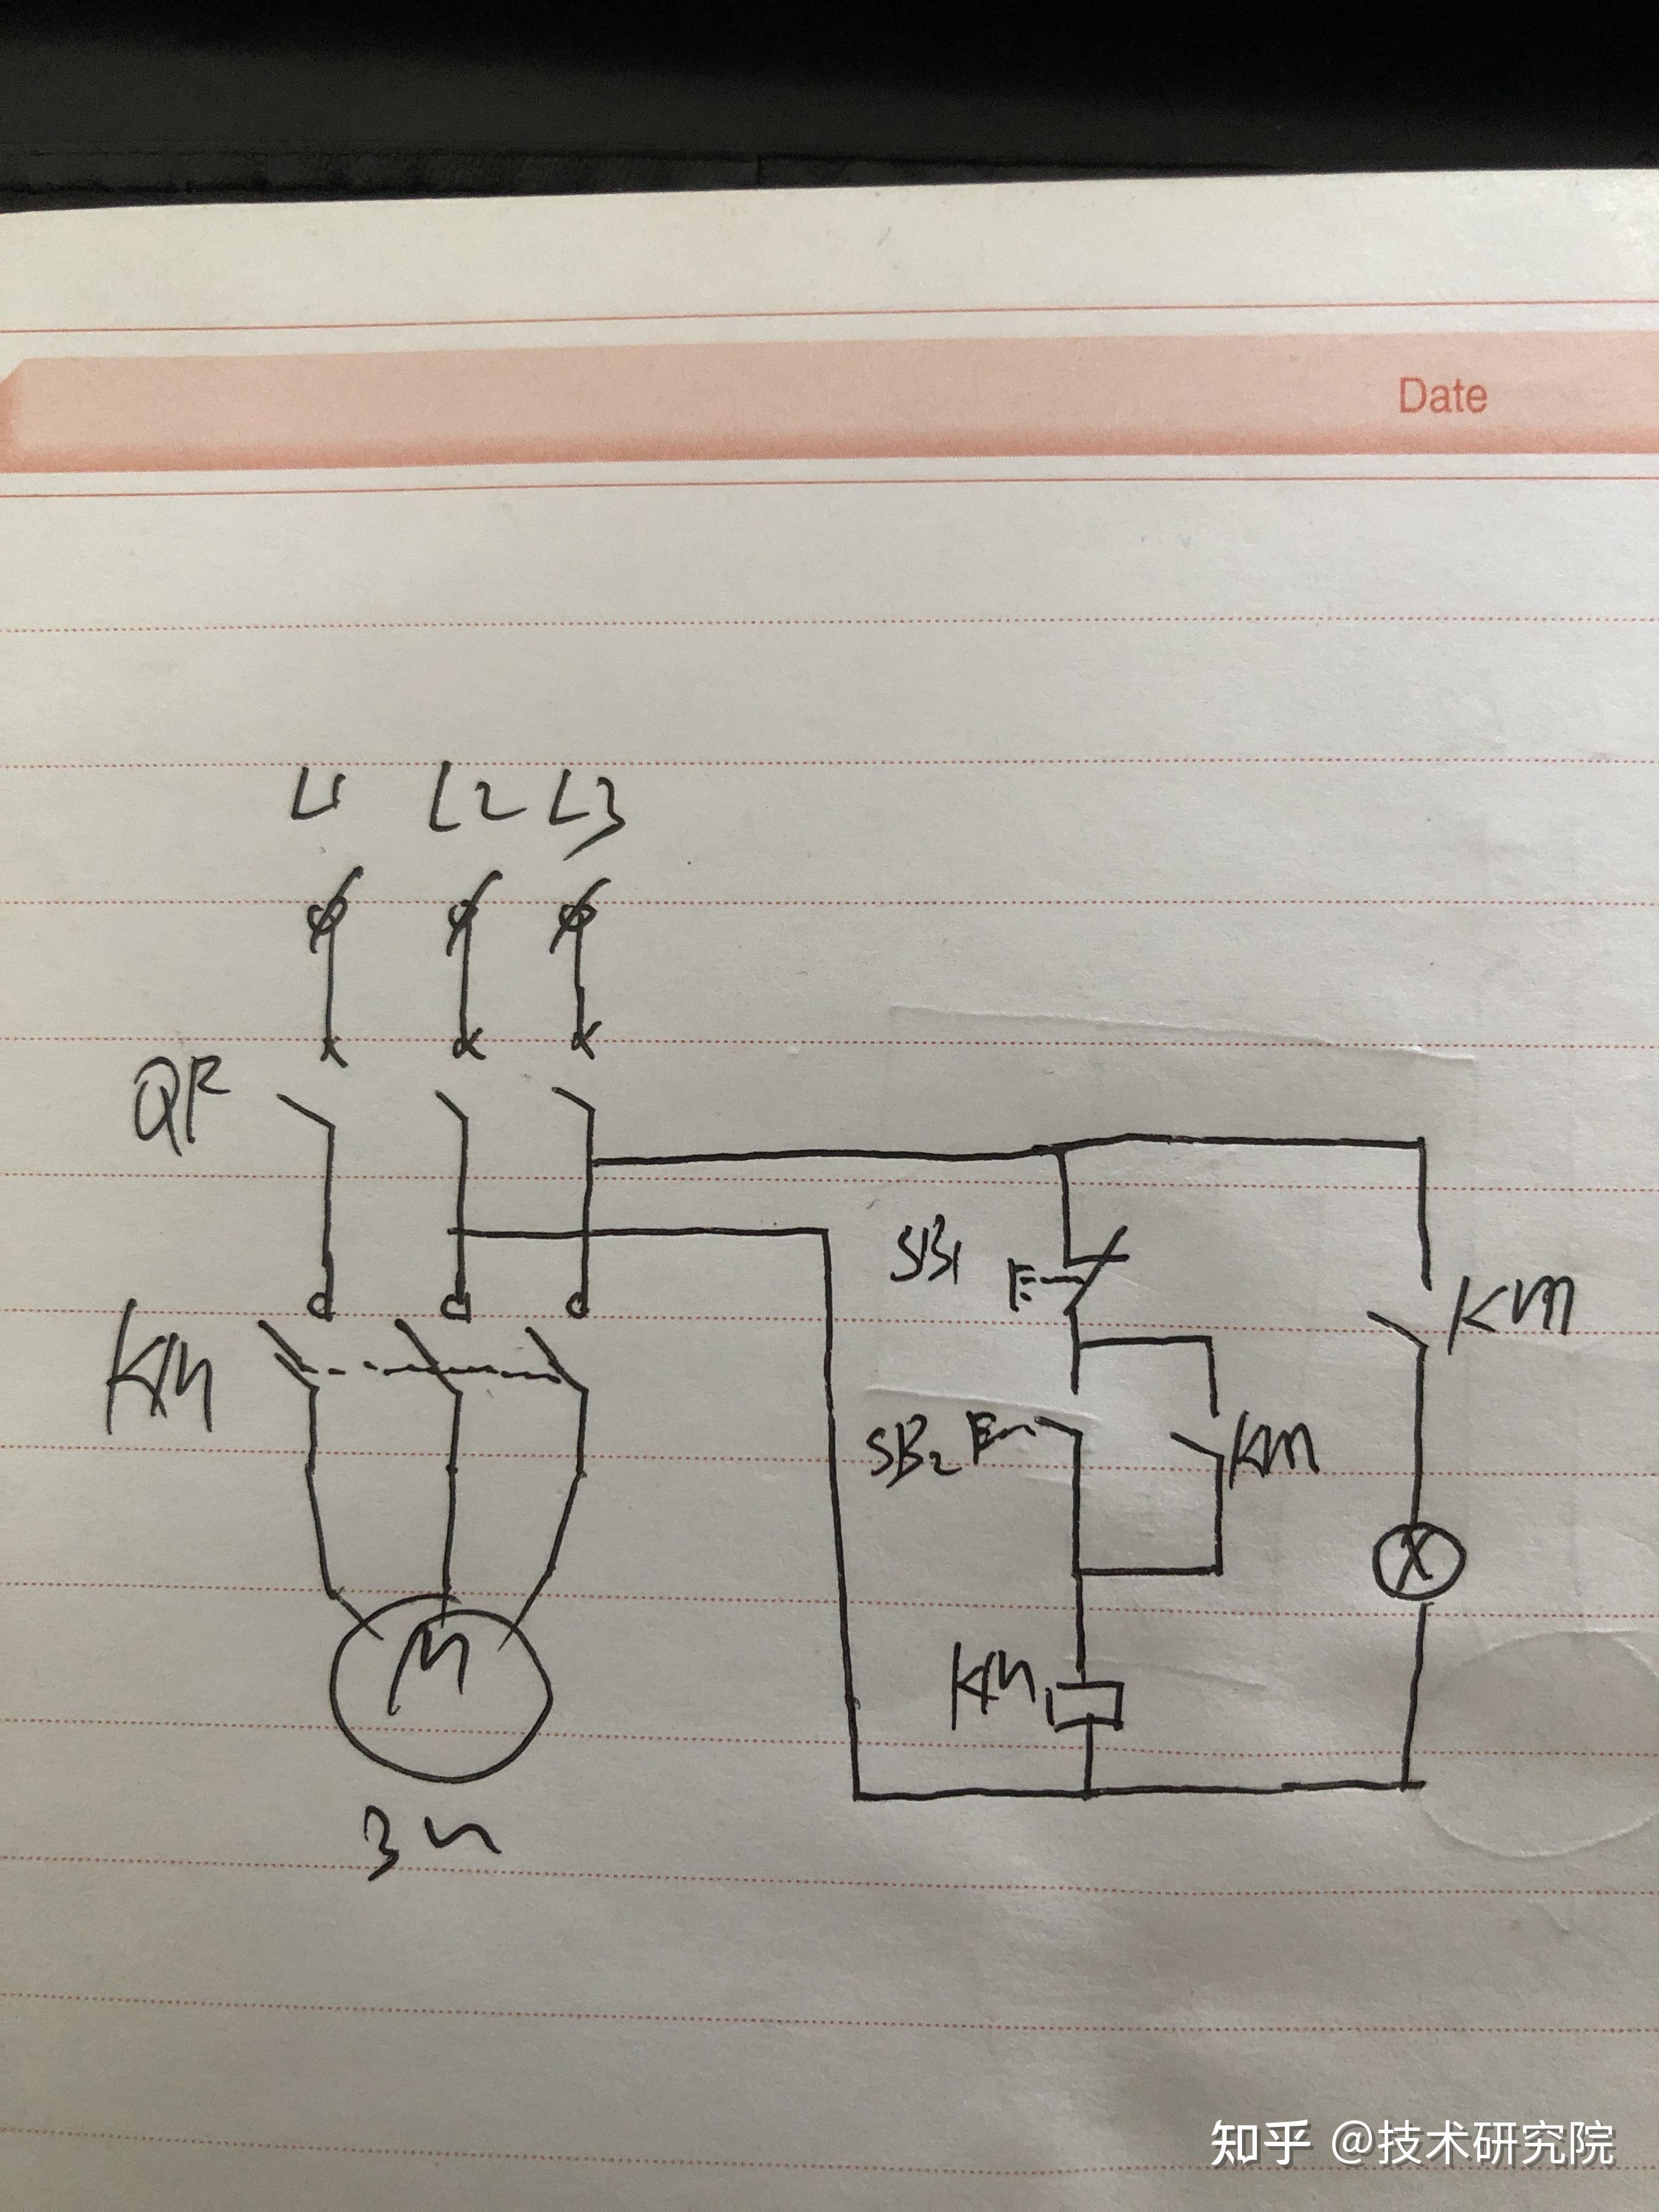 Date
L1 L2 L3
QF
KM
SB1
KM
SB2
KM
KM
M
3~
知乎 @技术研究院